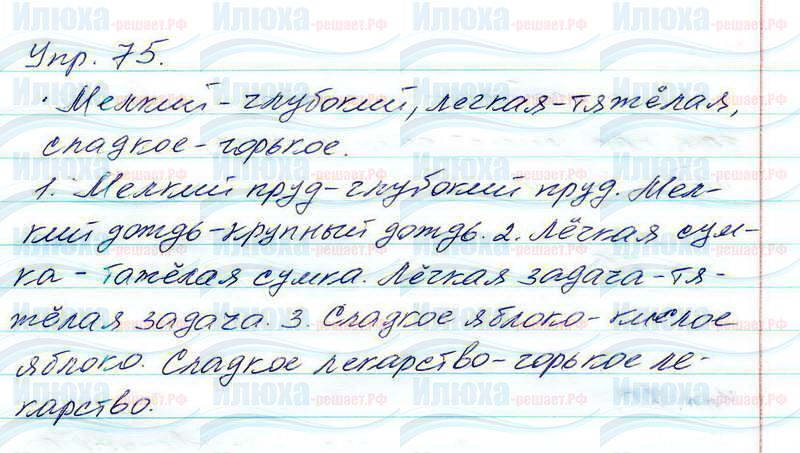 Упр. 75.
Мелкий-глубокий, легкая-тяжёлая,
сладкое-горькое.
1. Мелкий пруд-глубокий пруд. Мел-
кий дождь-крупный дождь. 2. Лёгкая сум-
ка - тажёлая сумка. Лёгкая задача-тя-
жёлая задача. 3. Сладкое яблоко-кислое
яблоко. Сладкое лекарство-горькое ле-
карство.
Илюха-решает.РФ